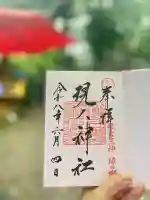 奉拝
現人神社
令和八年六月四日